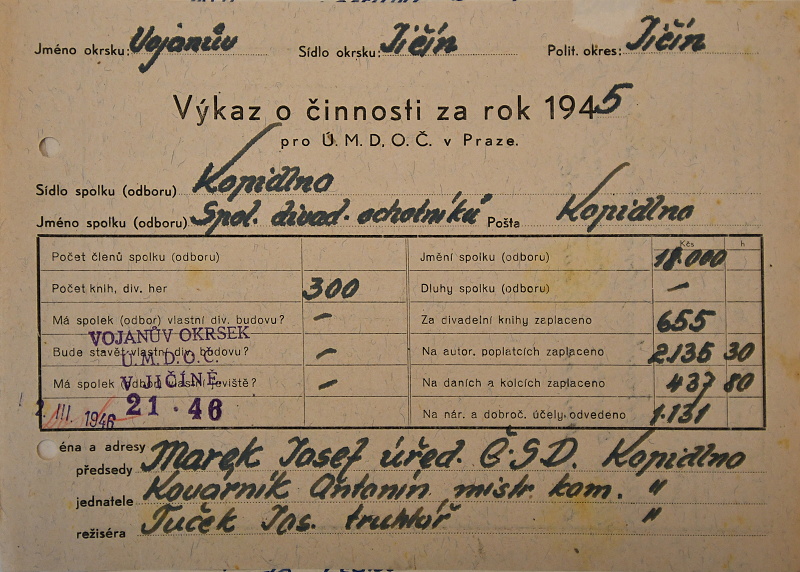 Jméno okrsku: Vojanův Sídlo okrsku: Jičín Polit. okres: Jičín
Výkaz o činnosti za rok 1945
pro Ú. M. D. O. Č. v Praze.
Sídlo spolku (odboru) Kopidlno
Jméno spolku (odboru) Spol. divad. ochotníků Pošta Kopidlno
Kčs h
Počet členů spolku (odboru) Jmění spolku (odboru) 18.000
Počet knih, div. her 300 Dluhy spolku (odboru) —
Má spolek (odbor) vlastní div. budovu? — Za divadelní knihy zaplaceno 655
VOJANŮV OKRSEK
Bude stavět vlastní div. budovu? — Na autor. poplatcích zaplaceno 2.135 30
Ú.M.D.O.Č.
Má spolek (odbor) vlastní jeviště? — Na daních a kolcích zaplaceno 437 80
V JIČÍNĚ
2 III. 1946 21 · 46 Na nár. a dobroč. účely odvedeno 1.131
éna a adresy
předsedy Marek Josef úřed. Č.S.D. Kopidlno
jednatele Kovárník Antonín mistr kam. "
režiséra Tuček Jos. truhlář "